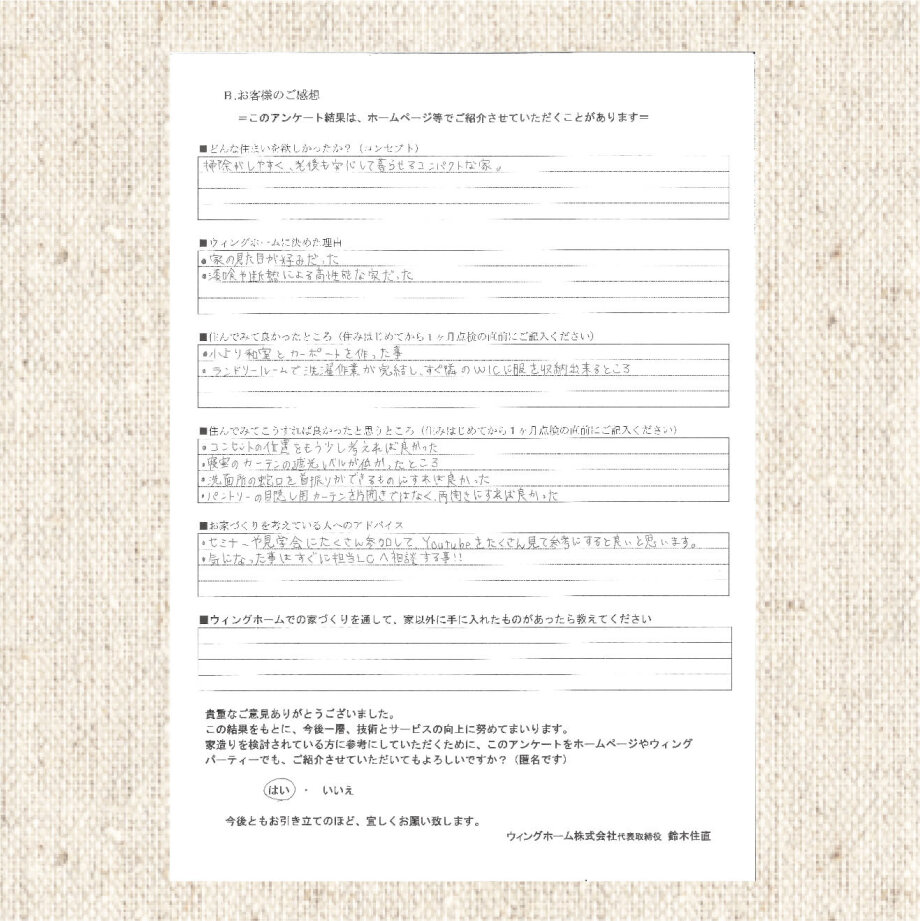 B.お客様のご感想
＝このアンケート結果は、ホームページ等でご紹介させていただくことがあります＝
■どんな住まいを欲しかったか？（コンセプト）
掃除がしやすく、老後も安心して暮らせるコンパクトな家。
■ウィングホームに決めた理由
・家の見た目が好みだった
・漆喰や断熱による高性能な家だった
■住んでみて良かったところ（住みはじめてから１ヶ月点検の直前にご記入ください）
・小上り和室とカーポートを作った事
・ランドリールームで洗濯作業が完結し、すぐ隣のWICに服を収納出来るところ
■住んでみてこうすれば良かったと思うところ（住みはじめてから１ヶ月点検の直前にご記入ください）
・コンセントの位置をもう少し考えれば良かった
・寝室のカーテンの遮光レベルが低かったところ
・洗面所の蛇口を首振りができるものにすれば良かった
・パントリーの目隠し用カーテンを片開きではなく、両開きにすれば良かった
■お家づくりを考えている人へのアドバイス
・セミナーや見学会にたくさん参加して、Youtubeをたくさん見て参考にすると良いと思います。
・気になった事はすぐに担当LCへ相談する事!!
■ウィングホームでの家づくりを通して、家以外に手に入れたものがあったら教えてください
貴重なご意見ありがとうございました。
この結果をもとに、今後一層、技術とサービスの向上に努めてまいります。
家造りを検討されている方に参考にしていただくために、このアンケートをホームページやウィング
パーティーでも、ご紹介させていただいてもよろしいですか？（匿名です）
はい ・ いいえ
今後ともお引き立てのほど、宜しくお願い致します。
ウィングホーム株式会社代表取締役 鈴木住直